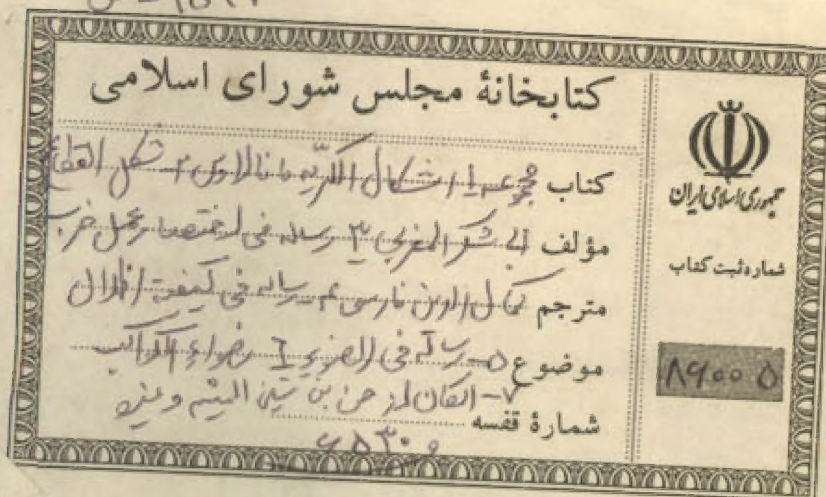 کتابخانهٔ مجلس شورای اسلامی
کتاب مجموعه ۱- اشکال الکریه مانالاوس ۲- شکل القطاع
مؤلف ابی شکر المغربی ۳- رساله فی
مترجم کمال الدین فارسی ۴- رساله فی کیفیة اظلال
موضوع ۵- رساله فی ۶- ضواء الکواکب
۷- المکان از حسن بن الهیثم و غیره
شمارهٔ قفسه
۶۵۳۰
جمهوری اسلامی ایران
شماره ثبت کتاب
۸۶۰۰۵